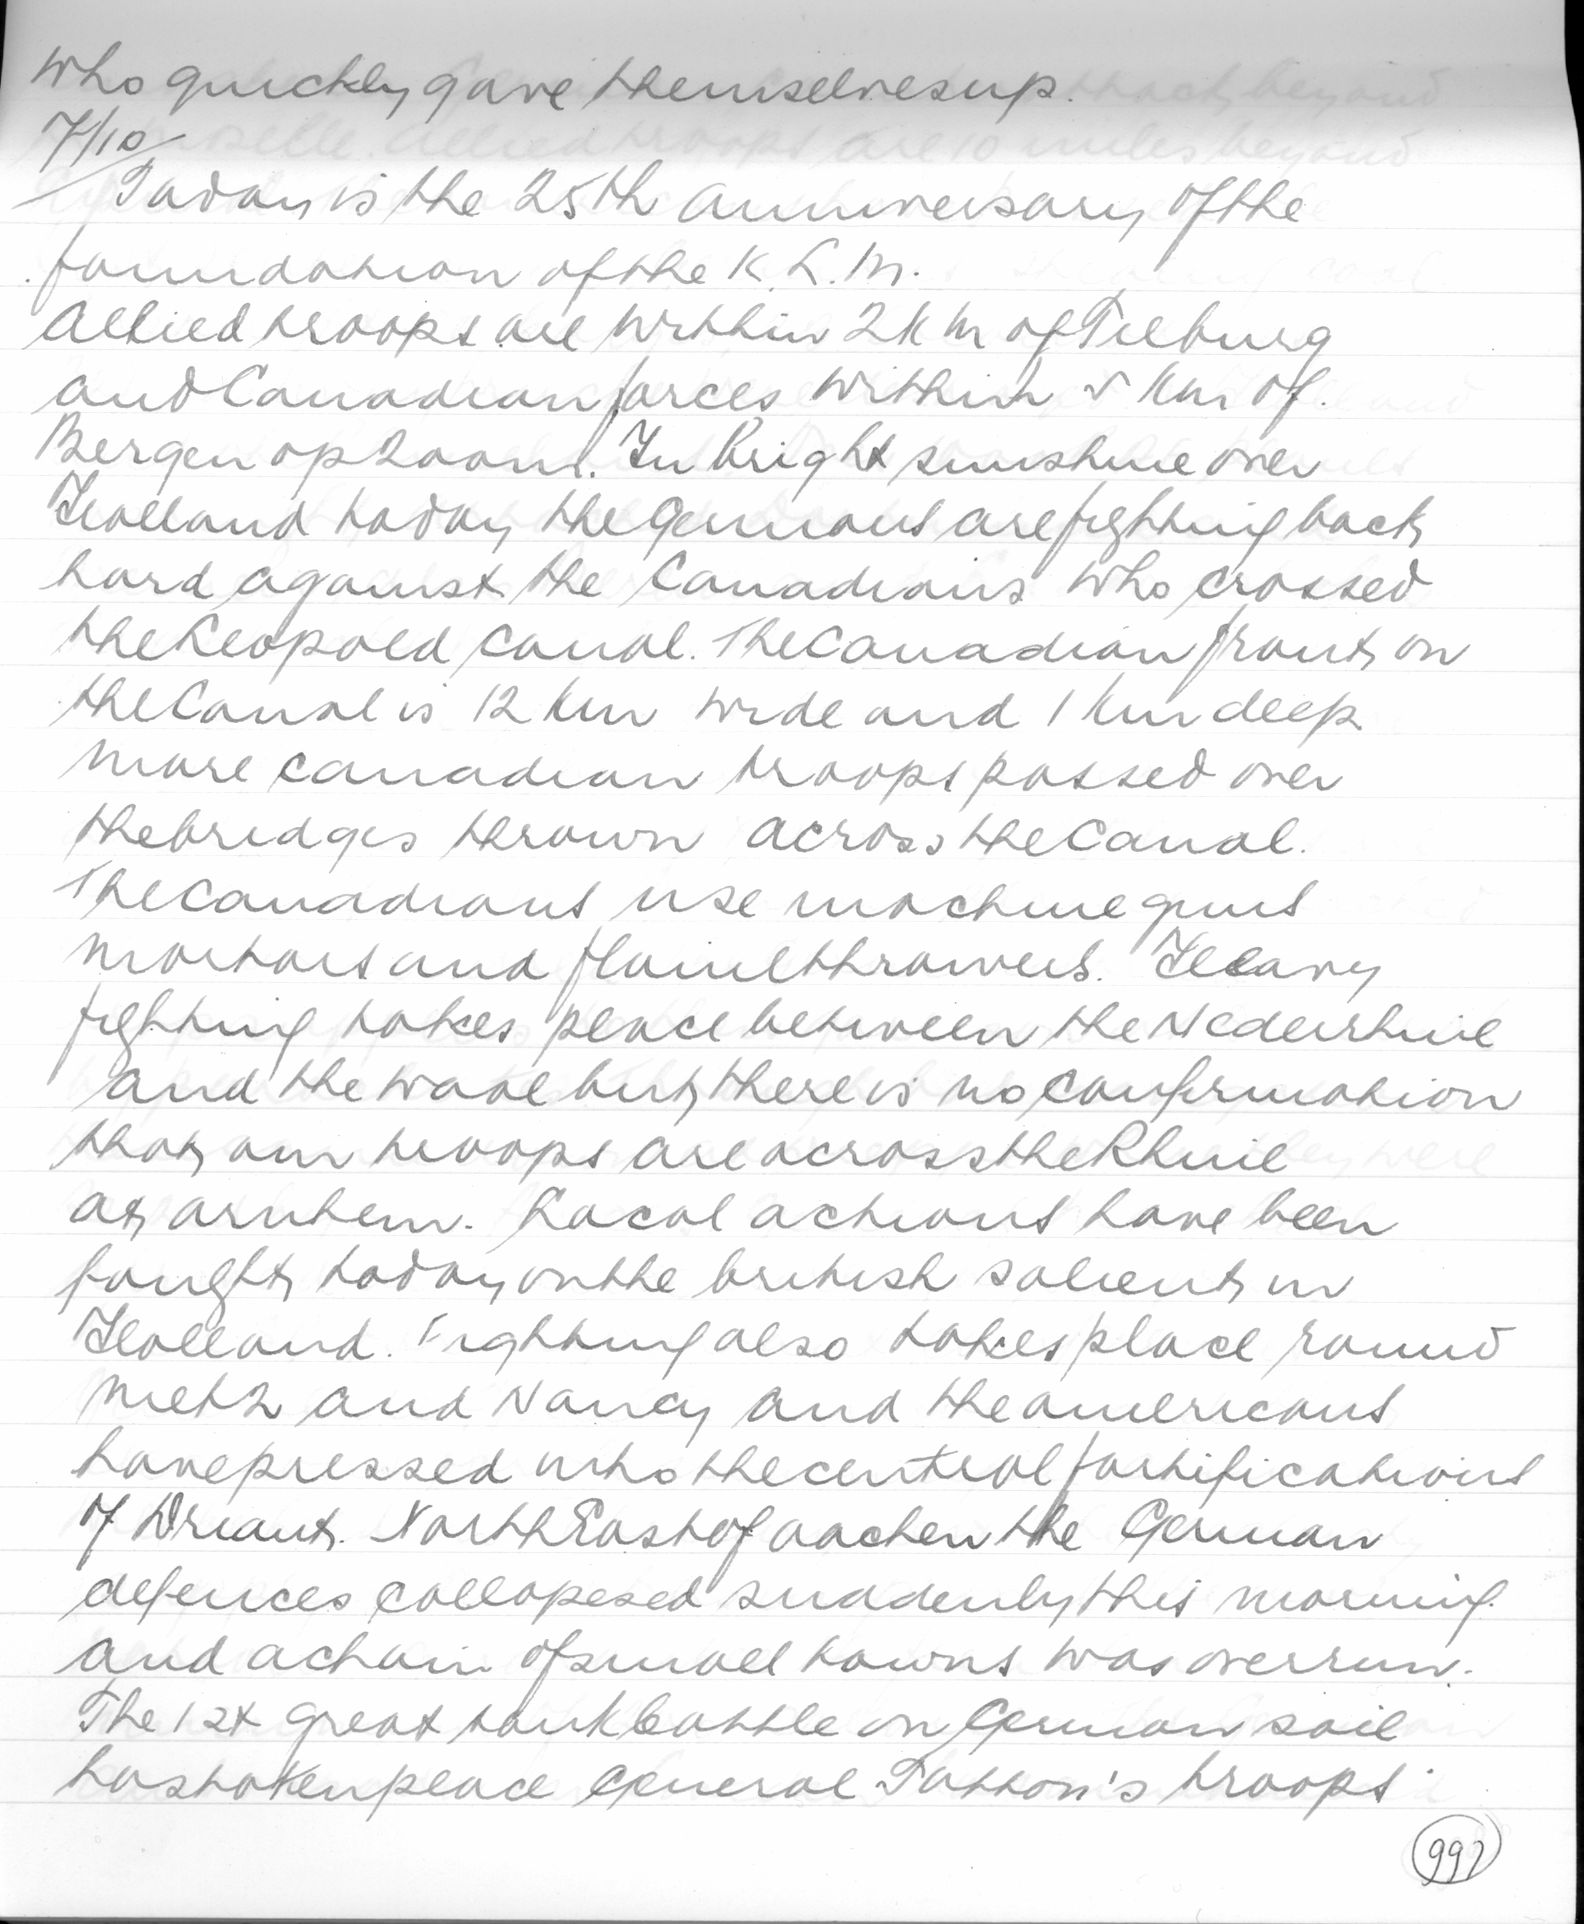 who quickly gave themselves up.
7/10
Today is the 25th anniversary of the
foundation of the K.L.M.
Allied troops are within 2 km of Tilburg
and Canadian forces within 5 km of
Bergen op Zoom. In bright sunshine over
Holland today the Germans are fighting back
hard against the Canadians who crossed
the Leopold Canal. The Canadian front on
the Canal is 12 km wide and 1 km deep
more canadian troops passed over
the bridges thrown across the Canal.
The Canadians use machine guns
mortars and flamethrowers. Heavy
fighting takes place between the Nederrhine
and the Waal but there is no confirmation
that our troops are across the Rhine
at Arnhem. Local actions have been
fought today on the british salient in
Holland. Fighting also takes place round
Metz and Nancy and the americans
have pressed into the central fortifications
of Driant. North East of aachen the German
defences collopesed suddenly this morning
and a chain of small towns was overrun.
The 1st great tank battle on German soil
has taken place General Patton's troops
997